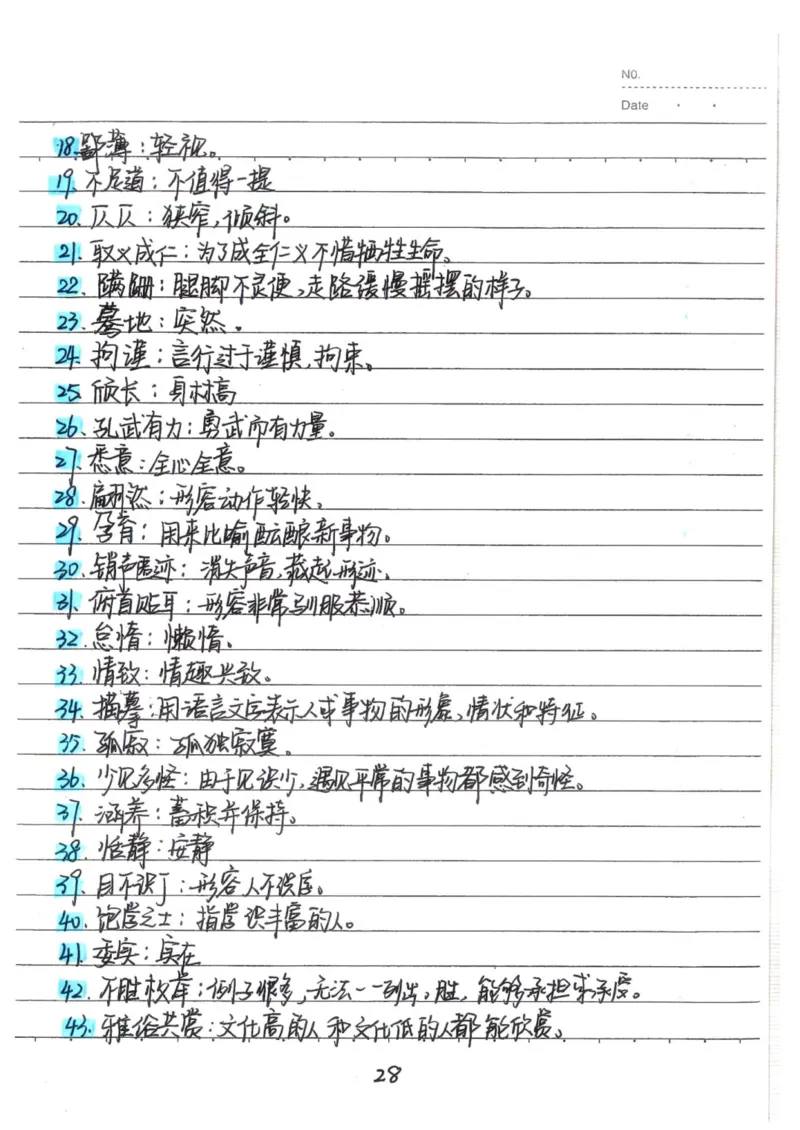 NO.
Date
18.鄙薄：轻视。
19.不足道：不值得一提
20.仄仄：狭窄，倾斜。
21.取义成仁：为了成全仁义不惜牺牲生命。
22.蹒跚：腿脚不灵便，走路缓慢摇摆的样子。
23.蓦地：突然。
24.拘谨：言行过于谨慎，拘束。
25.颀长：身材高
26.孔武有力：勇武而有力量。
27.悉意：全心全意。
28.翩然：形容动作轻快。
29.孕育：用来比喻酝酿新事物。
30.销声匿迹：消失声音，藏起形迹。
31.俯首贴耳：形容非常驯服恭顺。
32.怠惰：懒惰。
33.情致：情趣兴致。
34.描摹：用语言文字表示人或事物的形象、情状和特征。
35.孤寂：孤独寂寞。
36.少见多怪：由于见识少，遇见平常的事物都感到奇怪。
37.涵养：蓄积并保持。
38.恬静：安静
39.目不识丁：形容人不识字。
40.饱学之士：指学识丰富的人。
41.委实：实在
42.不胜枚举：例子很多，无法一一列出。胜，能够承担或承受。
43.雅俗共赏：文化高的人和文化低的人都能欣赏。
28